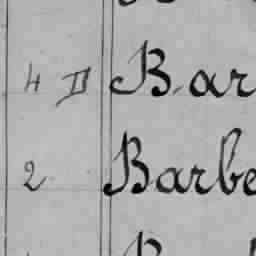 4 II Bar
2 Barbe